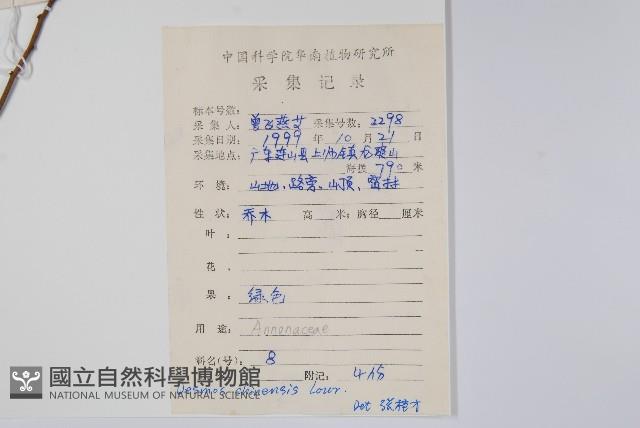 中国科学院华南植物研究所
采集记录
标本号数:
采集人: 曾飞燕 采集号数: 2298
采集日期: 1999 年 10 月 21 日
采集地点: 广东连山县上帅镇
海拔 790 米
环境: 山地、路旁、山顶、密林
性状: 乔木 高 米: 胸径 厘米
叶:
花:
果: 绿色
用途: Annonaceae
科名(号): 8
附记: 4份
Desmos chinensis Lour.
Det 张桂才
國立自然科學博物館
NATIONAL MUSEUM OF NATURAL SCIENCE